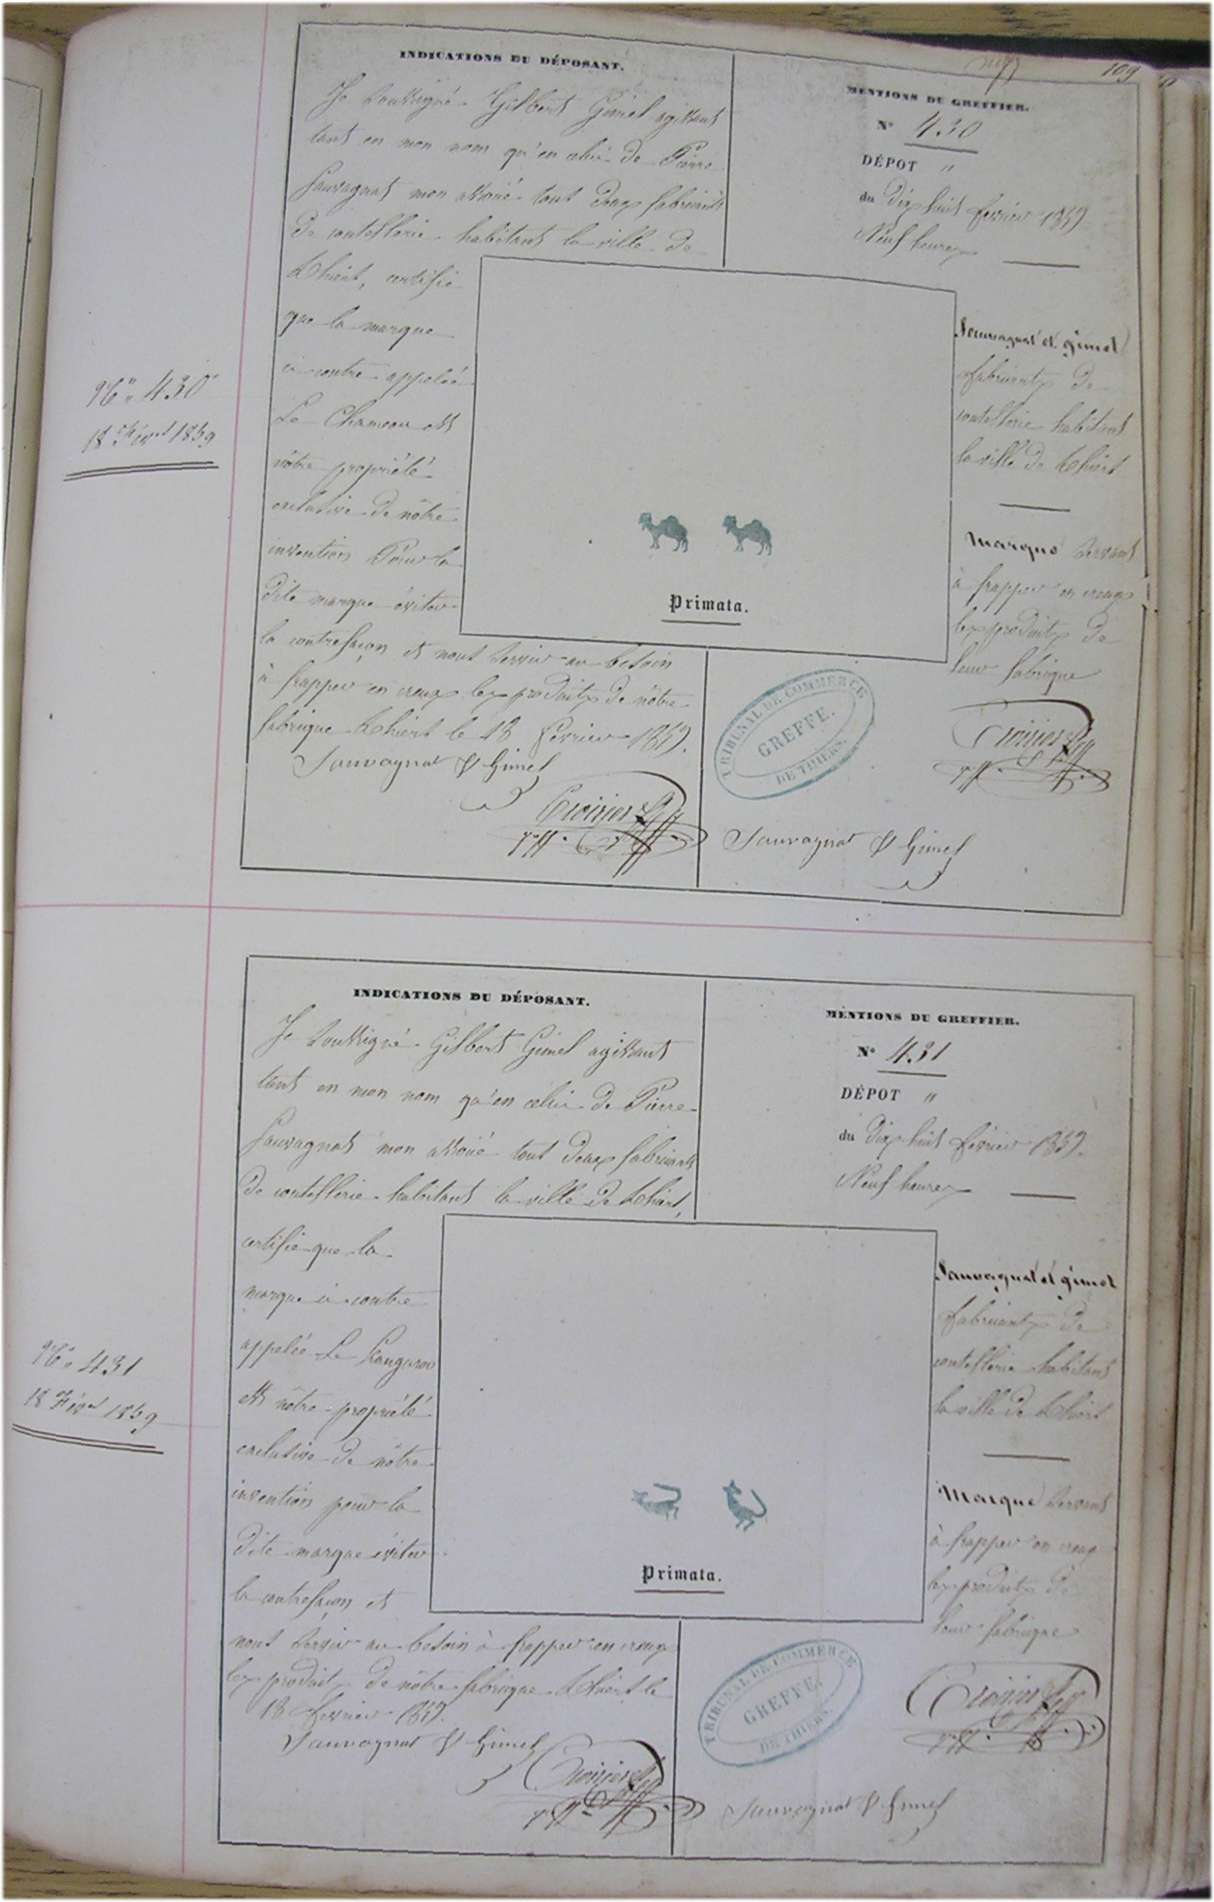 109
INDICATIONS DU DÉPOSANT.
Je soussigné Gilbert Gimel agissant
tant en mon nom qu'en celui de Pierre
Sauvagnat mon associé tout deux fabricants
de coutellerie habitants la ville de
Thiers, certifie
que la marque
ci contre appelée
Le Chameau est
nôtre propriété
exclusive de nôtre
invention Pour la
dite marque éviter
la contrefaçon et nous servir au besoin
à frapper en creux les produits de nôtre
fabrique Thiers le 18 février 1859.
Sauvagnat & Gimel
MENTIONS DU GREFFIER.
N° 430
DÉPOT "
du dix huit février 1859
Neuf heures
Sauvagnat et gimel
fabricants de
coutellerie habitant
la ville de Thiers
Marque servant
à frapper en creux
les produits de
leur fabrique
N° 430
18 févr 1859
Primata.
TRIBUNAL DE COMMERCE
GREFFE.
DE THIERS.
Sauvagnat & Gimel
INDICATIONS DU DÉPOSANT.
Je soussigné Gilbert Gimel agissant
tant en mon nom qu'en celui de Pierre
Sauvagnat mon associé tout deux fabricants
de coutellerie habitant la ville de Thiers,
certifie que la
marque ci contre
appelée Le Kangurou
est nôtre propriété
exclusive de nôtre
invention pour la
dite marque éviter
la contrefaçon et
nous servir au besoin à frapper en creux
les produits de nôtre fabrique Thiers le
18 février 1859.
Sauvagnat & Gimel
MENTIONS DU GREFFIER.
N° 431
DÉPOT "
du dix huit février 1859.
Neuf heures
Sauvagnat et gimel
fabricants de
coutellerie habitant
la ville de Thiers
Marque servant
à frapper en creux
les produits de
leur fabrique
N° 431
18 Févr 1859
Primata.
TRIBUNAL DE COMMERCE
GREFFE.
DE THIERS.
Sauvagnat & Gimel